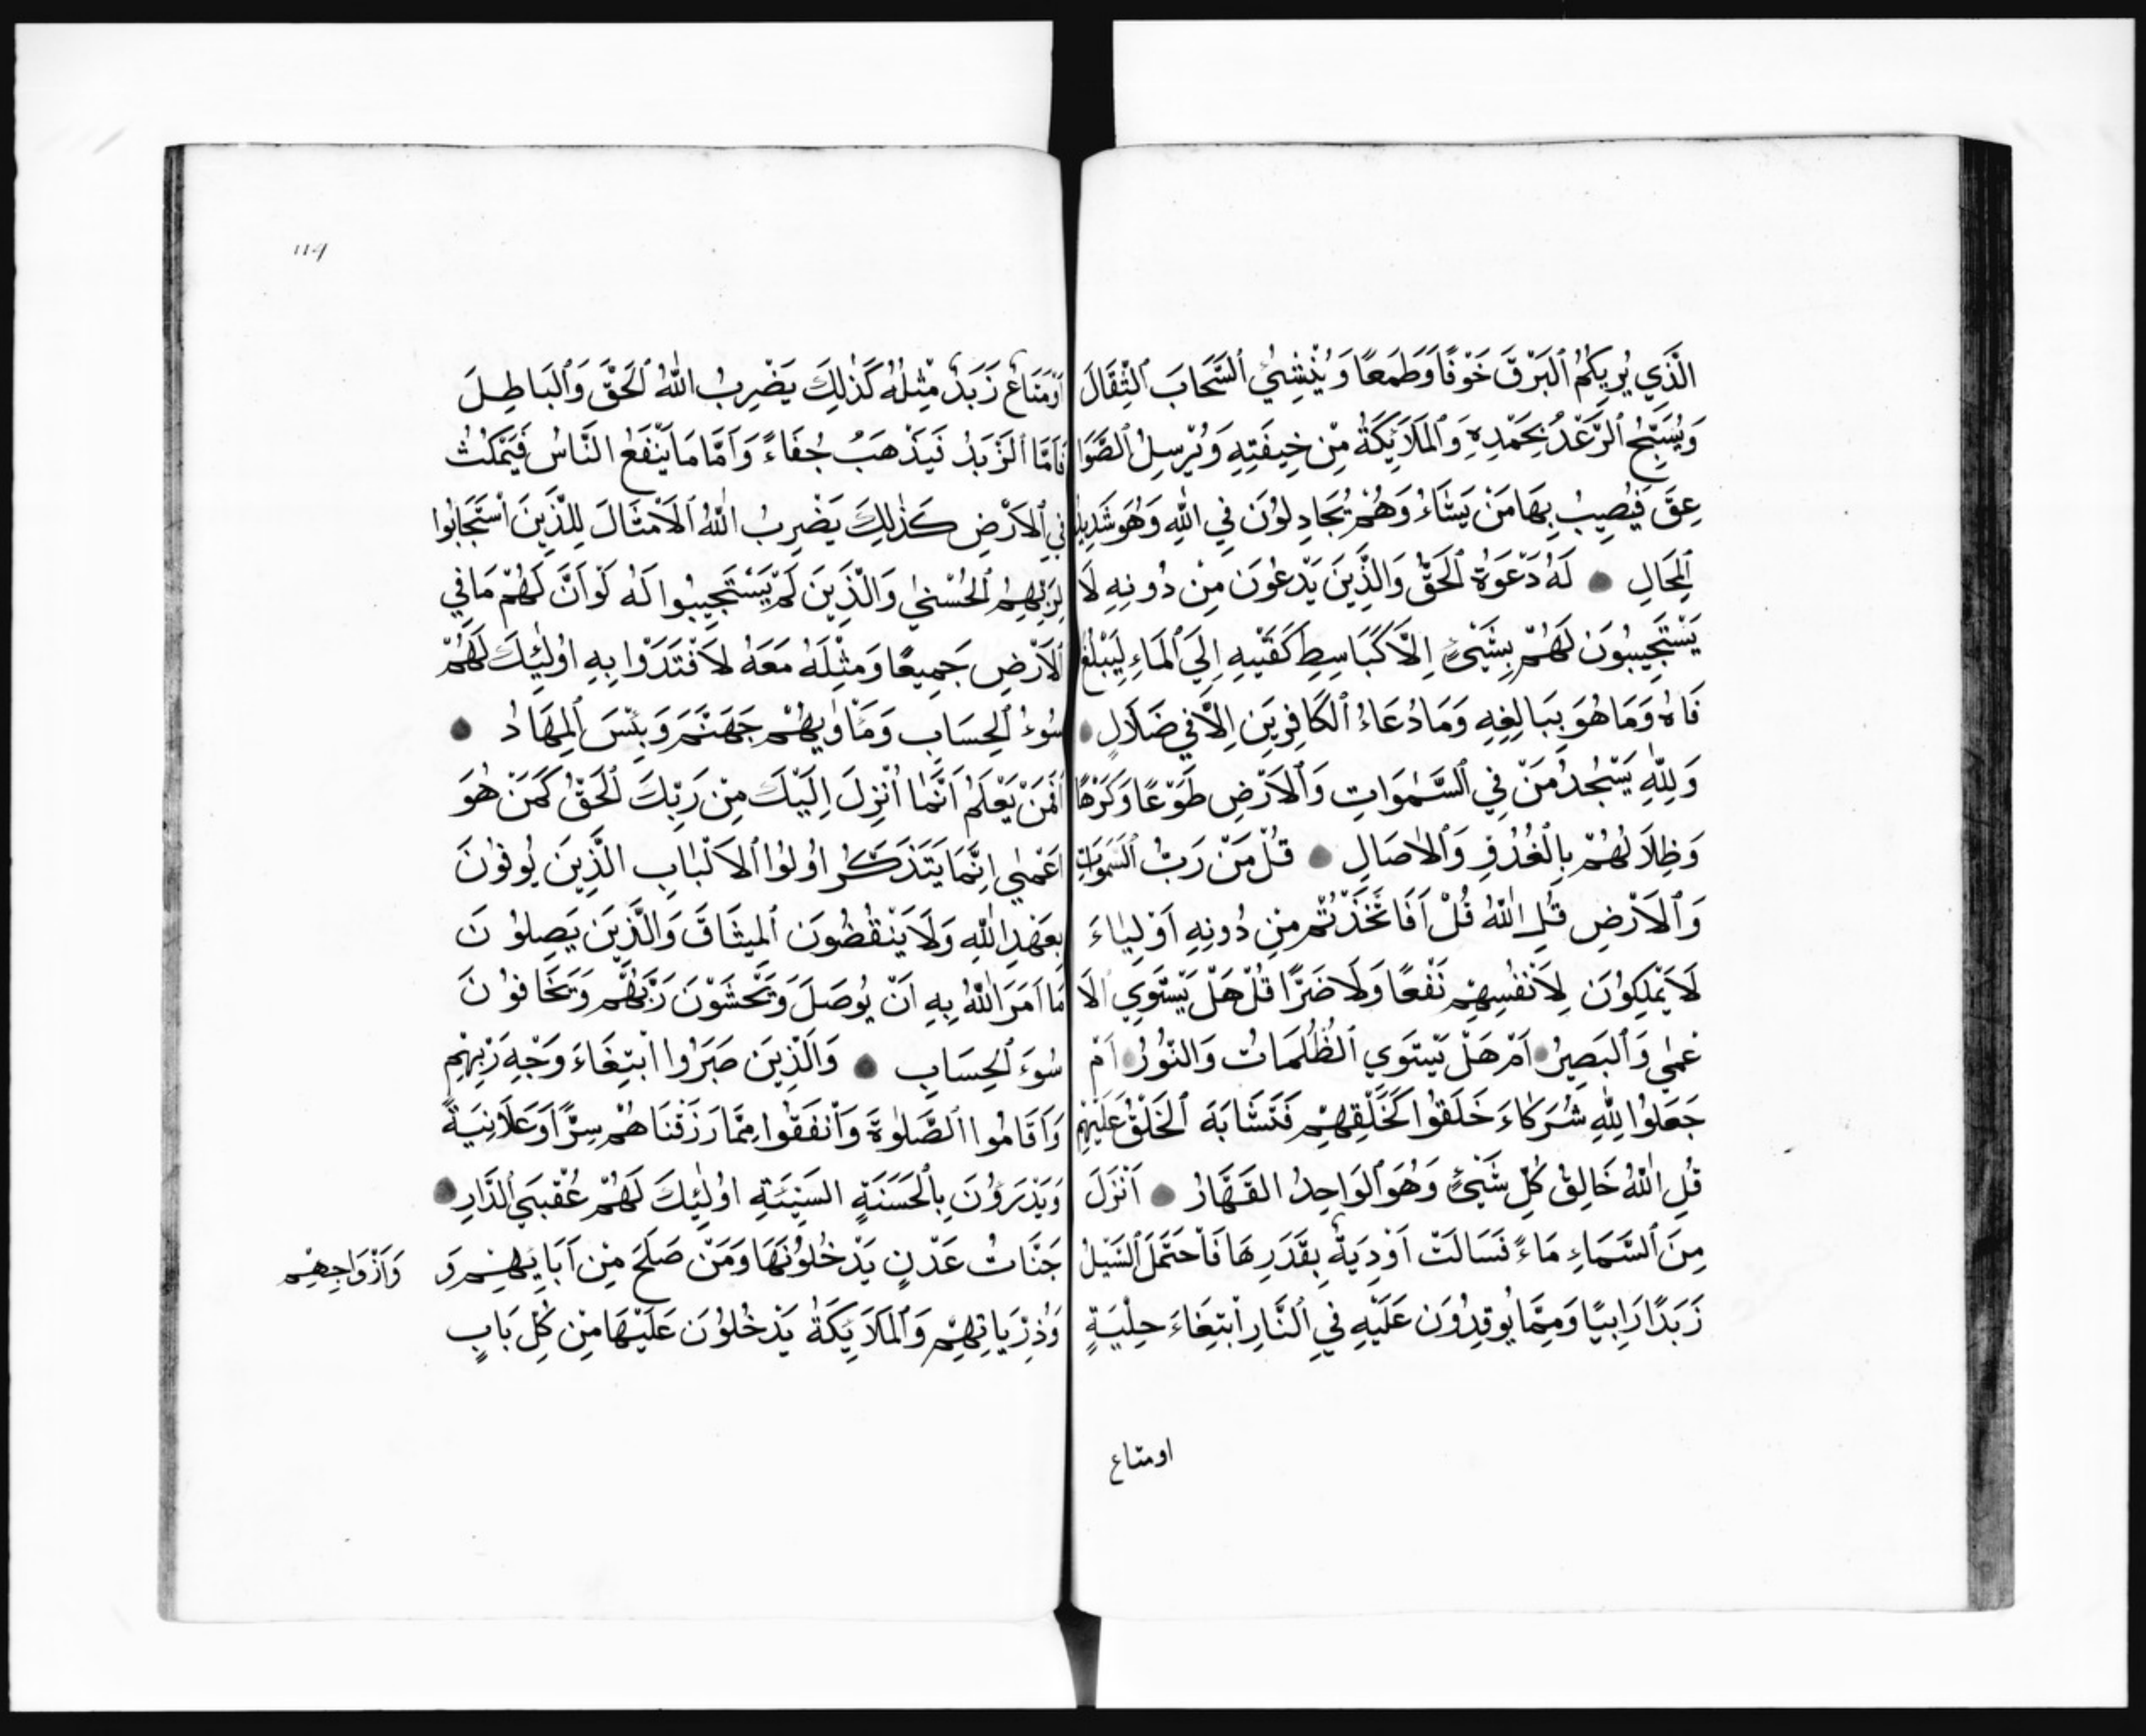 الَّذِي يُرِيكُمُ ٱلبَرْقَ خَوْفًا وَطَمَعًا وَيُنْشِئُ ٱلسَّحَابَ ٱلثِّقَالَ
وَيُسَبِّحُ ٱلرَّعْدُ بِحَمْدِهِ وَٱلمَلَائِكَةُ مِنْ خِيفَتِهِ وَيُرْسِلُ ٱلصَّوَا
عِقَ فَيُصِيبُ بِهَا مَنْ يَشَاءُ وَهُمْ يُجَادِلُونَ فِي اللّٰهِ وَهُوَ شَدِيدُ
ٱلمِحَالِ ● لَهُ دَعْوَةُ ٱلحَقِّ وَالَّذِينَ يَدْعُونَ مِنْ دُونِهِ لَا
يَسْتَجِيبُونَ لَهُمْ بِشَيْئٍ اِلَّا كَبَاسِطِ كَفَّيْهِ اِلَي ٱلمَاءِ لِيَبْلُغَ
فَاهُ وَمَا هُوَ بِبَالِغِهِ وَمَا دُعَاءُ ٱلكَافِرِينَ اِلَّا فِي ضَلَالٍ ●
وَلِلّٰهِ يَسْجُدُ مَنْ فِي ٱلسَّمٰوَاتِ وَٱلاَرْضِ طَوْعًا وَكَرْهًا
وَظِلَالُهُمْ بِالْغُدُوِّ وَٱلاٰصَالِ ● قُلْ مَنْ رَبُّ ٱلسَّمٰوَاتِ
وَٱلاَرْضِ قُلِ اللّٰهُ قُلْ اَفَاتَّخَذْتُمْ مِنْ دُونِهِ اَوْلِيَاءَ
لَا يَمْلِكُونَ لِاَنْفُسِهِمْ نَفْعًا وَلَا ضَرًّا قُلْ هَلْ يَسْتَوِي ٱلاَ
عْمٰي وَٱلبَصِيرُ ● اَمْ هَلْ يَسْتَوِي ٱلظُّلُمَاتُ وَالنُّورُ ● اَمْ
جَعَلُوا لِلّٰهِ شُرَكَاءَ خَلَقُوا كَخَلْقِهِمْ فَتَشَابَهَ ٱلخَلْقُ عَلَيْهِمْ
قُلِ اللّٰهُ خَالِقُ كُلِّ شَيْئٍ وَهُوَ ٱلوَاحِدُ القَهَّارُ ● اَنْزَلَ
مِنَ ٱلسَّمَاءِ مَاءً فَسَالَتْ اَوْدِيَةٌ بِقَدَرِهَا فَاحْتَمَلَ ٱلسَّيْلُ
زَبَدًا رَابِيًا وَمِمَّا يُوقِدُونَ عَلَيْهِ فِي ٱلنَّارِ ابْتِغَاءَ حِلْيَةٍ
او متاع
١١٩
اَوْ مَتَاعٍ زَبَدٌ مِثْلُهُ كَذٰلِكَ يَضْرِبُ اللّٰهُ ٱلحَقَّ وَٱلبَاطِلَ
فَاَمَّا ٱلزَّبَدُ فَيَذْهَبُ جُفَاءً وَاَمَّا مَا يَنْفَعُ النَّاسَ فَيَمْكُثُ
فِي ٱلاَرْضِ كَذٰلِكَ يَضْرِبُ اللّٰهُ ٱلاَمْثَالَ لِلَّذِينَ اسْتَجَابُوا
لِرَبِّهِمُ ٱلحُسْنٰي وَالَّذِينَ لَمْ يَسْتَجِيبُوا لَهُ لَوْ اَنَّ لَهُمْ مَا فِي
ٱلاَرْضِ جَمِيعًا وَمِثْلَهُ مَعَهُ لَافْتَدَوْا بِهِ اُولٰئِكَ لَهُمْ
سُوءُ ٱلحِسَابِ وَمَاْوٰيهُمْ جَهَنَّمُ وَبِئْسَ ٱلمِهَادُ ●
اَفَمَنْ يَعْلَمُ اَنَّمَا اُنْزِلَ اِلَيْكَ مِنْ رَبِّكَ ٱلحَقُّ كَمَنْ هُوَ
اَعْمٰي اِنَّمَا يَتَذَكَّرُ اُولُوا ٱلاَلْبَابِ الَّذِينَ يُوفُونَ
بِعَهْدِ اللّٰهِ وَلَا يَنْقُضُونَ ٱلمِيثَاقَ وَالَّذِينَ يَصِلُونَ
مَا اَمَرَ اللّٰهُ بِهِ اَنْ يُوصَلَ وَيَخْشَوْنَ رَبَّهُمْ وَيَخَافُونَ
سُوءَ ٱلحِسَابِ ● وَالَّذِينَ صَبَرُوا ابْتِغَاءَ وَجْهِ رَبِّهِمْ
وَاَقَامُوا ٱلصَّلٰوةَ وَاَنْفَقُوا مِمَّا رَزَقْنَاهُمْ سِرًّا وَعَلَانِيَةً
وَيَدْرَؤُنَ بِالْحَسَنَةِ السَّيِّئَةَ اُولٰئِكَ لَهُمْ عُقْبَي ٱلدَّارِ ●
جَنَّاتُ عَدْنٍ يَدْخُلُونَهَا وَمَنْ صَلَحَ مِنْ اٰبَائِهِمْ وَ
وَاَزْوَاجِهِمْ
وَذُرِّيَاتِهِمْ وَٱلمَلَائِكَةُ يَدْخُلُونَ عَلَيْهَا مِنْ كُلِّ بَابٍ